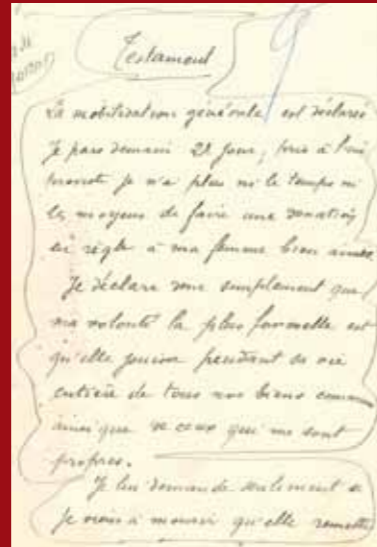 Testament
La mobilisation générale est déclarée
Je pars demain 2e jour, pris à l'im
proviste je n'a plus ni le temps ni
les moyens de faire une donation
en règle à ma femme bien aimée.
Je déclare donc simplement que
ma volonté la plus formelle est
qu'elle jouisse pendant sa vie
entière de tous nos biens communs
ainsi que de ceux qui me sont
propres.
Je lui demande seulement si
je viens à mourir qu'elle remette